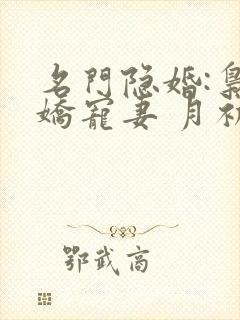 名門隐婚:
嬌寵妻 月初
鄂武商